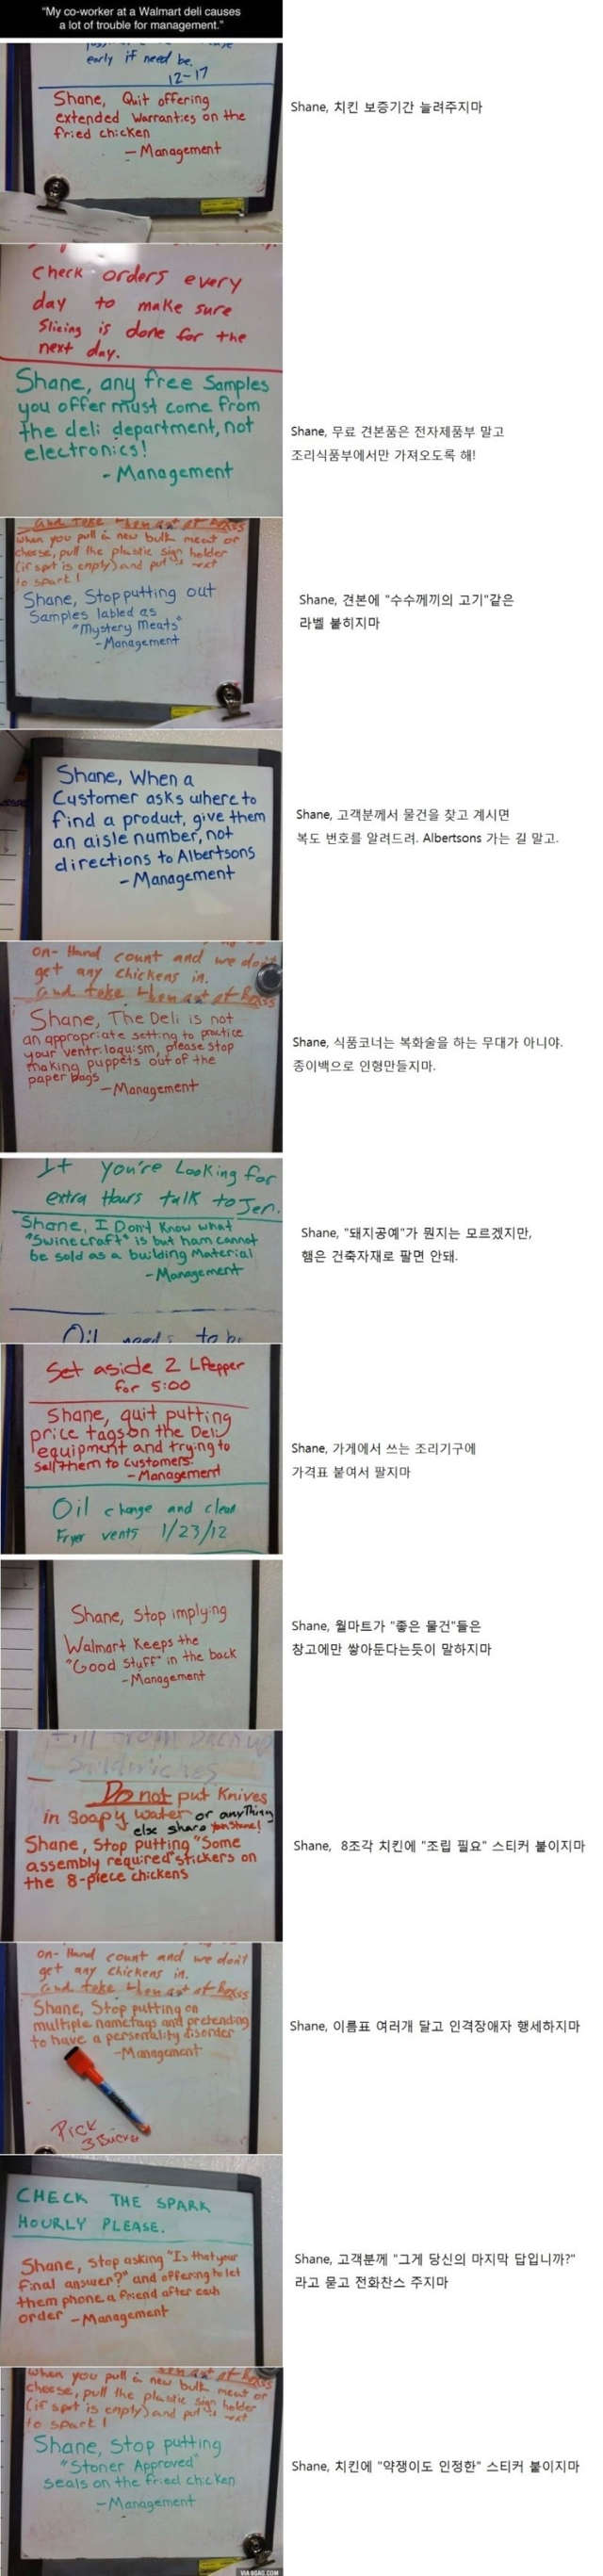 "My co-worker at a Walmart deli causes
a lot of trouble for management."
early if need be.
12-17
Shane, Quit offering
extended Warranties on the
fried chicken
- Management
Shane, 치킨 보증기간 늘려주지마
Check orders every
day to make sure
Slicing is done for the
next day.
Shane, any free Samples
you offer must come from
the deli department, not
electronics!
- Management
Shane, 무료 견본품은 전자제품부 말고
조리식품부에서만 가져오도록 해!
and take them out of boxes
when you pull a new bulk meat or
cheese, pull the plastic sign holder
(if spot is empty) and put it next
to spark!
Shane, Stop putting out
Samples labled as
"Mystery Meats"
- Management
Shane, 견본에 "수수께끼의 고기"같은
라벨 붙히지마
Shane, When a
Customer asks where to
find a product, give them
an aisle number, not
directions to Albertsons
- Management
Shane, 고객분께서 물건을 찾고 계시면
복도 번호를 알려드려. Albertsons 가는 길 말고.
on-Hand count and we don't
get any chickens in.
and take them out of boxes
Shane, The Deli is not
an appropriate setting to practice
your ventriloquism, please stop
making puppets out of the
paper bags
- Management
Shane, 식품코너는 복화술을 하는 무대가 아니야.
종이백으로 인형만들지마.
If you're Looking for
extra Hours talk to Jen.
Shane, I Don't Know what
"Swinecraft" is but ham cannot
be sold as a building Material
- Management
Oil needs to be
Shane, "돼지공예"가 뭔지는 모르겠지만,
햄은 건축자재로 팔면 안돼.
Set aside 2 LPepper
for 5:00
Shane, quit putting
price tags on the Deli
equipment and trying to
sell them to customers.
- Management
Oil change and clean
Fryer vents 1/23/12
Shane, 가게에서 쓰는 조리기구에
가격표 붙여서 팔지마
Shane, Stop implying
Walmart Keeps the
"Good Stuff" in the back
- Management
Shane, 월마트가 "좋은 물건"들은
창고에만 쌓아둔다는듯이 말하지마
Sandwiches
Do not put Knives
in soapy water or anything
else sharp
Shane, Stop putting "Some
assembly required" stickers on
the 8-piece chickens
Shane, 8조각 치킨에 "조립 필요" 스티커 붙이지마
on-Hand count and we don't
get any chickens in.
and take them out of boxes
Shane, Stop putting on
multiple nametags and pretending
to have a personality disorder
- Management
Pick
Shane, 이름표 여러개 달고 인격장애자 행세하지마
CHECK THE SPARK
HOURLY PLEASE.
Shane, Stop asking "Is that your
final answer?" and offering to let
them phone a friend after each
order - Management
Shane, 고객분께 "그게 당신의 마지막 답입니까?"
라고 묻고 전화찬스 주지마
when you pull a new bulk meat or
cheese, pull the plastic sign holder
(if spot is empty) and put it next
to spark!
Shane, Stop putting
"Stoner Approved"
seals on the fried chicken
- Management
Shane, 치킨에 "약쟁이도 인정한" 스티커 붙이지마
VIA 9GAG.COM